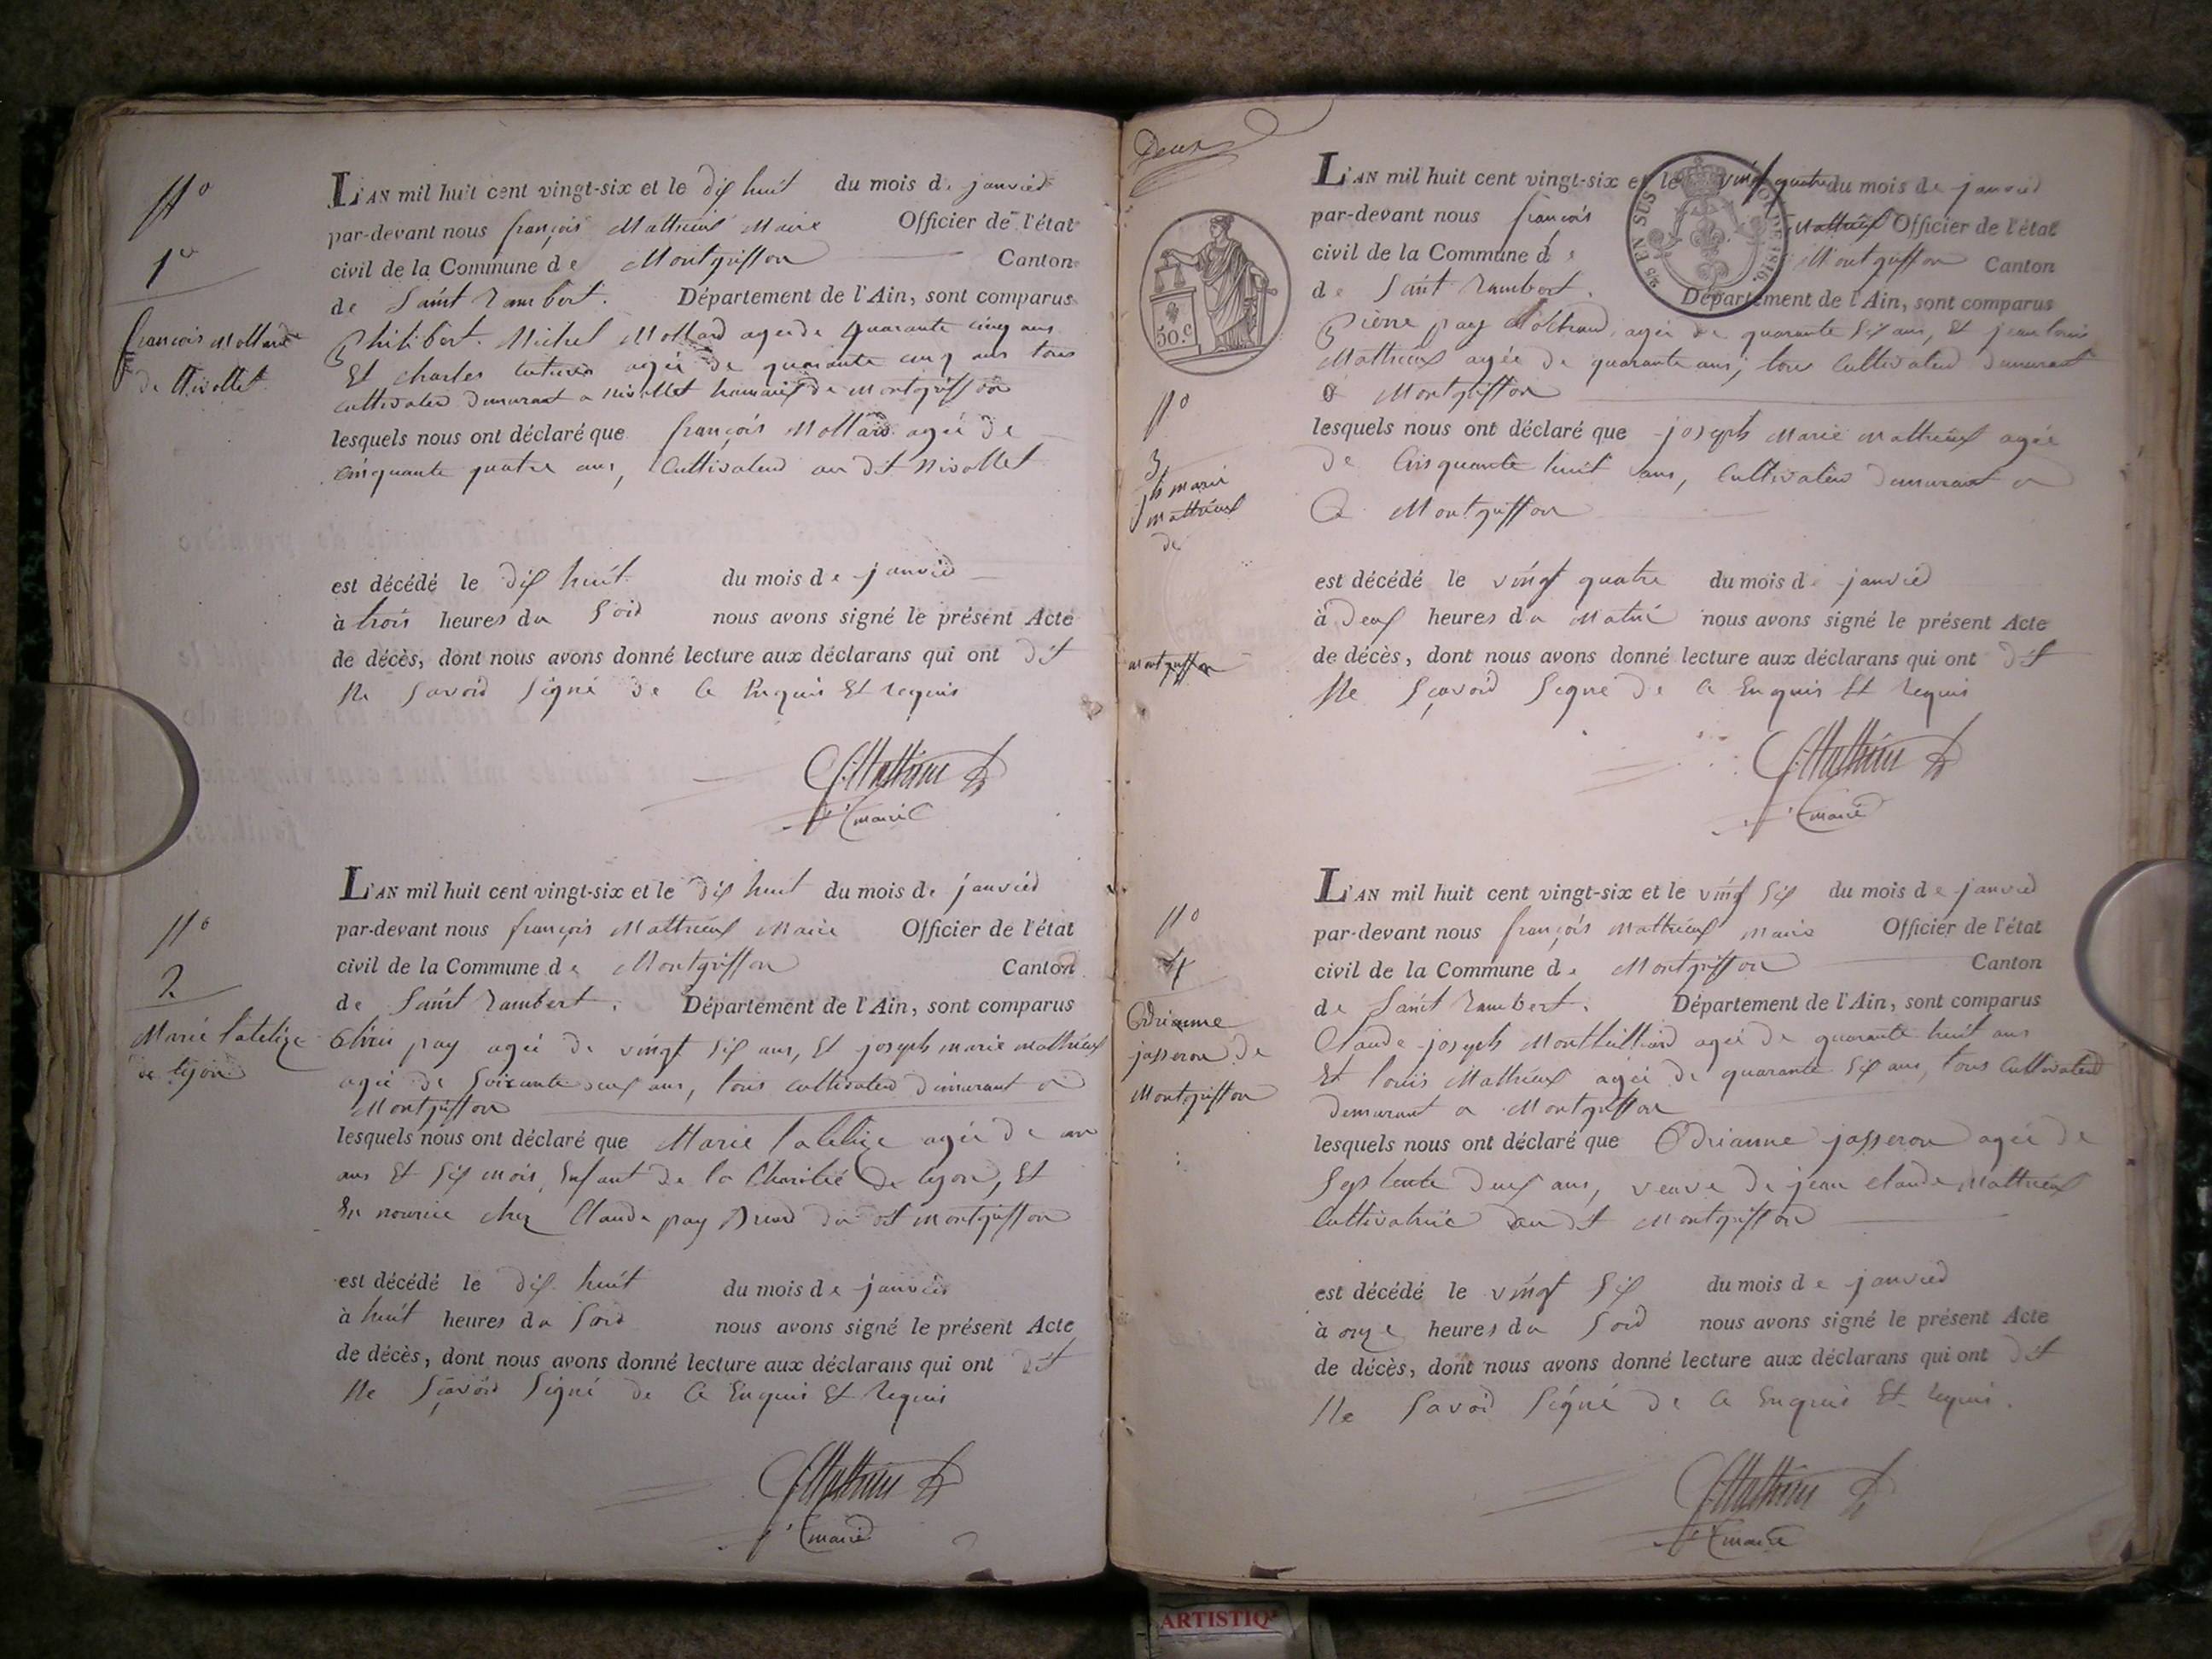 N°
1er
françois Mollard
de Nivollet
L'AN mil huit cent vingt-six et le dix huit du mois de janvier
par-devant nous françois Mathieux Maire Officier de l'état
civil de la Commune de Montgriffon Canton
de Saint Rambert. Département de l'Ain, sont comparus
Philibert Michel Mollard agée de quarante cinq ans
Et charles agée de quarante cinq ans tous
cultivateur demurant a nivollet hameaux de montgriffon
lesquels nous ont déclaré que françois Mollard agée de
cinquante quatre ans, Cultivateur au dit Nivollet
est décédé le dix huit du mois de janvier
à trois heures du Soir nous avons signé le présent Acte
de décès, dont nous avons donné lecture aux déclarans qui ont dit
Ne Savoir Signé de Ce Enquis Et Requis
Mathieu
maire
N°
2
Marie
de lyon
L'AN mil huit cent vingt-six et le dix huit du mois de janvier
par-devant nous françois Mathieux Maire Officier de l'état
civil de la Commune de Montgriffon Canton
de Saint Rambert. Département de l'Ain, sont comparus
pay agée de vingt Six ans, Et joseph marie mathieux
agée de Soixante deux ans, tous cultivateur demurant a
Montgriffon
lesquels nous ont déclaré que Marie agée de un
ans Et Six mois, Enfant de la Charitée de lyon, Et
En nourice chez Claude pay du dit montgriffon
est décédé le dix huit du mois de janvier
à huit heures du Soir nous avons signé le présent Acte
de décès, dont nous avons donné lecture aux déclarans qui ont dit
Ne Sçavoir Signé de Ce Enquis Et Requis
Mathieu
maire
Deux
50.c
25 EN SUS
DE 1816
N°
3
jh marie
mathieux
de
montgriffon
L'AN mil huit cent vingt-six et le vingt quatre du mois de janvier
par-devant nous françois Mathieux Officier de l'état
civil de la Commune de Montgriffon Canton
de Saint Rambert. Département de l'Ain, sont comparus
Pierre pay agée de quarante Six ans, Et jean louis
Mathieux agée de quarante ans, tous Cultivateur demurant
a Montgriffon
lesquels nous ont déclaré que joseph Marie mathieux agée
de Cinquante huit ans, Cultivateur demurant a
a Montgriffon
est décédé le vingt quatre du mois de janvier
à deux heures du Matin nous avons signé le présent Acte
de décès, dont nous avons donné lecture aux déclarans qui ont dit
Ne Sçavoir Signé de Ce Enquis Et Requis
Mathieu
maire
N°
4
Odrianne
jasseron de
Montgriffon
L'AN mil huit cent vingt-six et le vingt Six du mois de janvier
par-devant nous françois Mathieux Maire Officier de l'état
civil de la Commune de Montgriffon Canton
de Saint Rambert. Département de l'Ain, sont comparus
Claude joseph agée de quarante huit ans
Et louis Mathieux agée de quarante Six ans, tous Cultivateur
demurant a Montgriffon
lesquels nous ont déclaré que Odrianne jasseron agée de
Septente deux ans, veuve de jean claude Mathieux
Cultivatrice au dit Montgriffon
est décédé le vingt Six du mois de janvier
à onze heures du Soir nous avons signé le présent Acte
de décès, dont nous avons donné lecture aux déclarans qui ont dit
Ne Savoir Signé de Ce Enquis Et Requis.
Mathieu
maire
ARTISTIQ